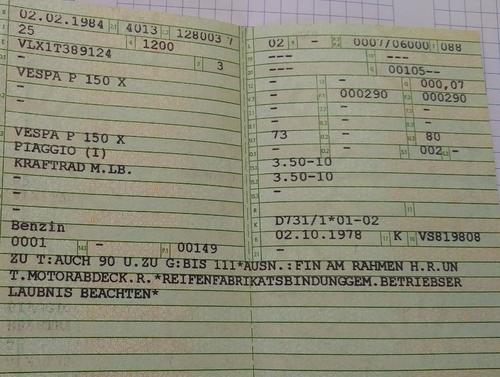 02.02.1984 4013 128003 7
25 4 1200
VLX1T389124 3
-
VESPA P 150 X
-
-
VESPA P 150 X
PIAGGIO (I)
KRAFTRAD M.LB.
-
-
-
Benzin
0001 - P.1 00149
02 - 0007/06000 088
--- ---
--- 00105--
- - 000,07
- 000290 000290
- - -
- - -
73 - 80
- - 002 -
3.50-10
3.50-10
-
-
D731/1*01-02
02.10.1978 K VS819808
-
ZU T:AUCH 90 U.ZU G:BIS 111*AUSN.:FIN AM RAHMEN H.R.UN
T.MOTORABDECK.R.*REIFENFABRIKATSBINDUNGGEM.BETRIEBSER
LAUBNIS BEACHTEN*